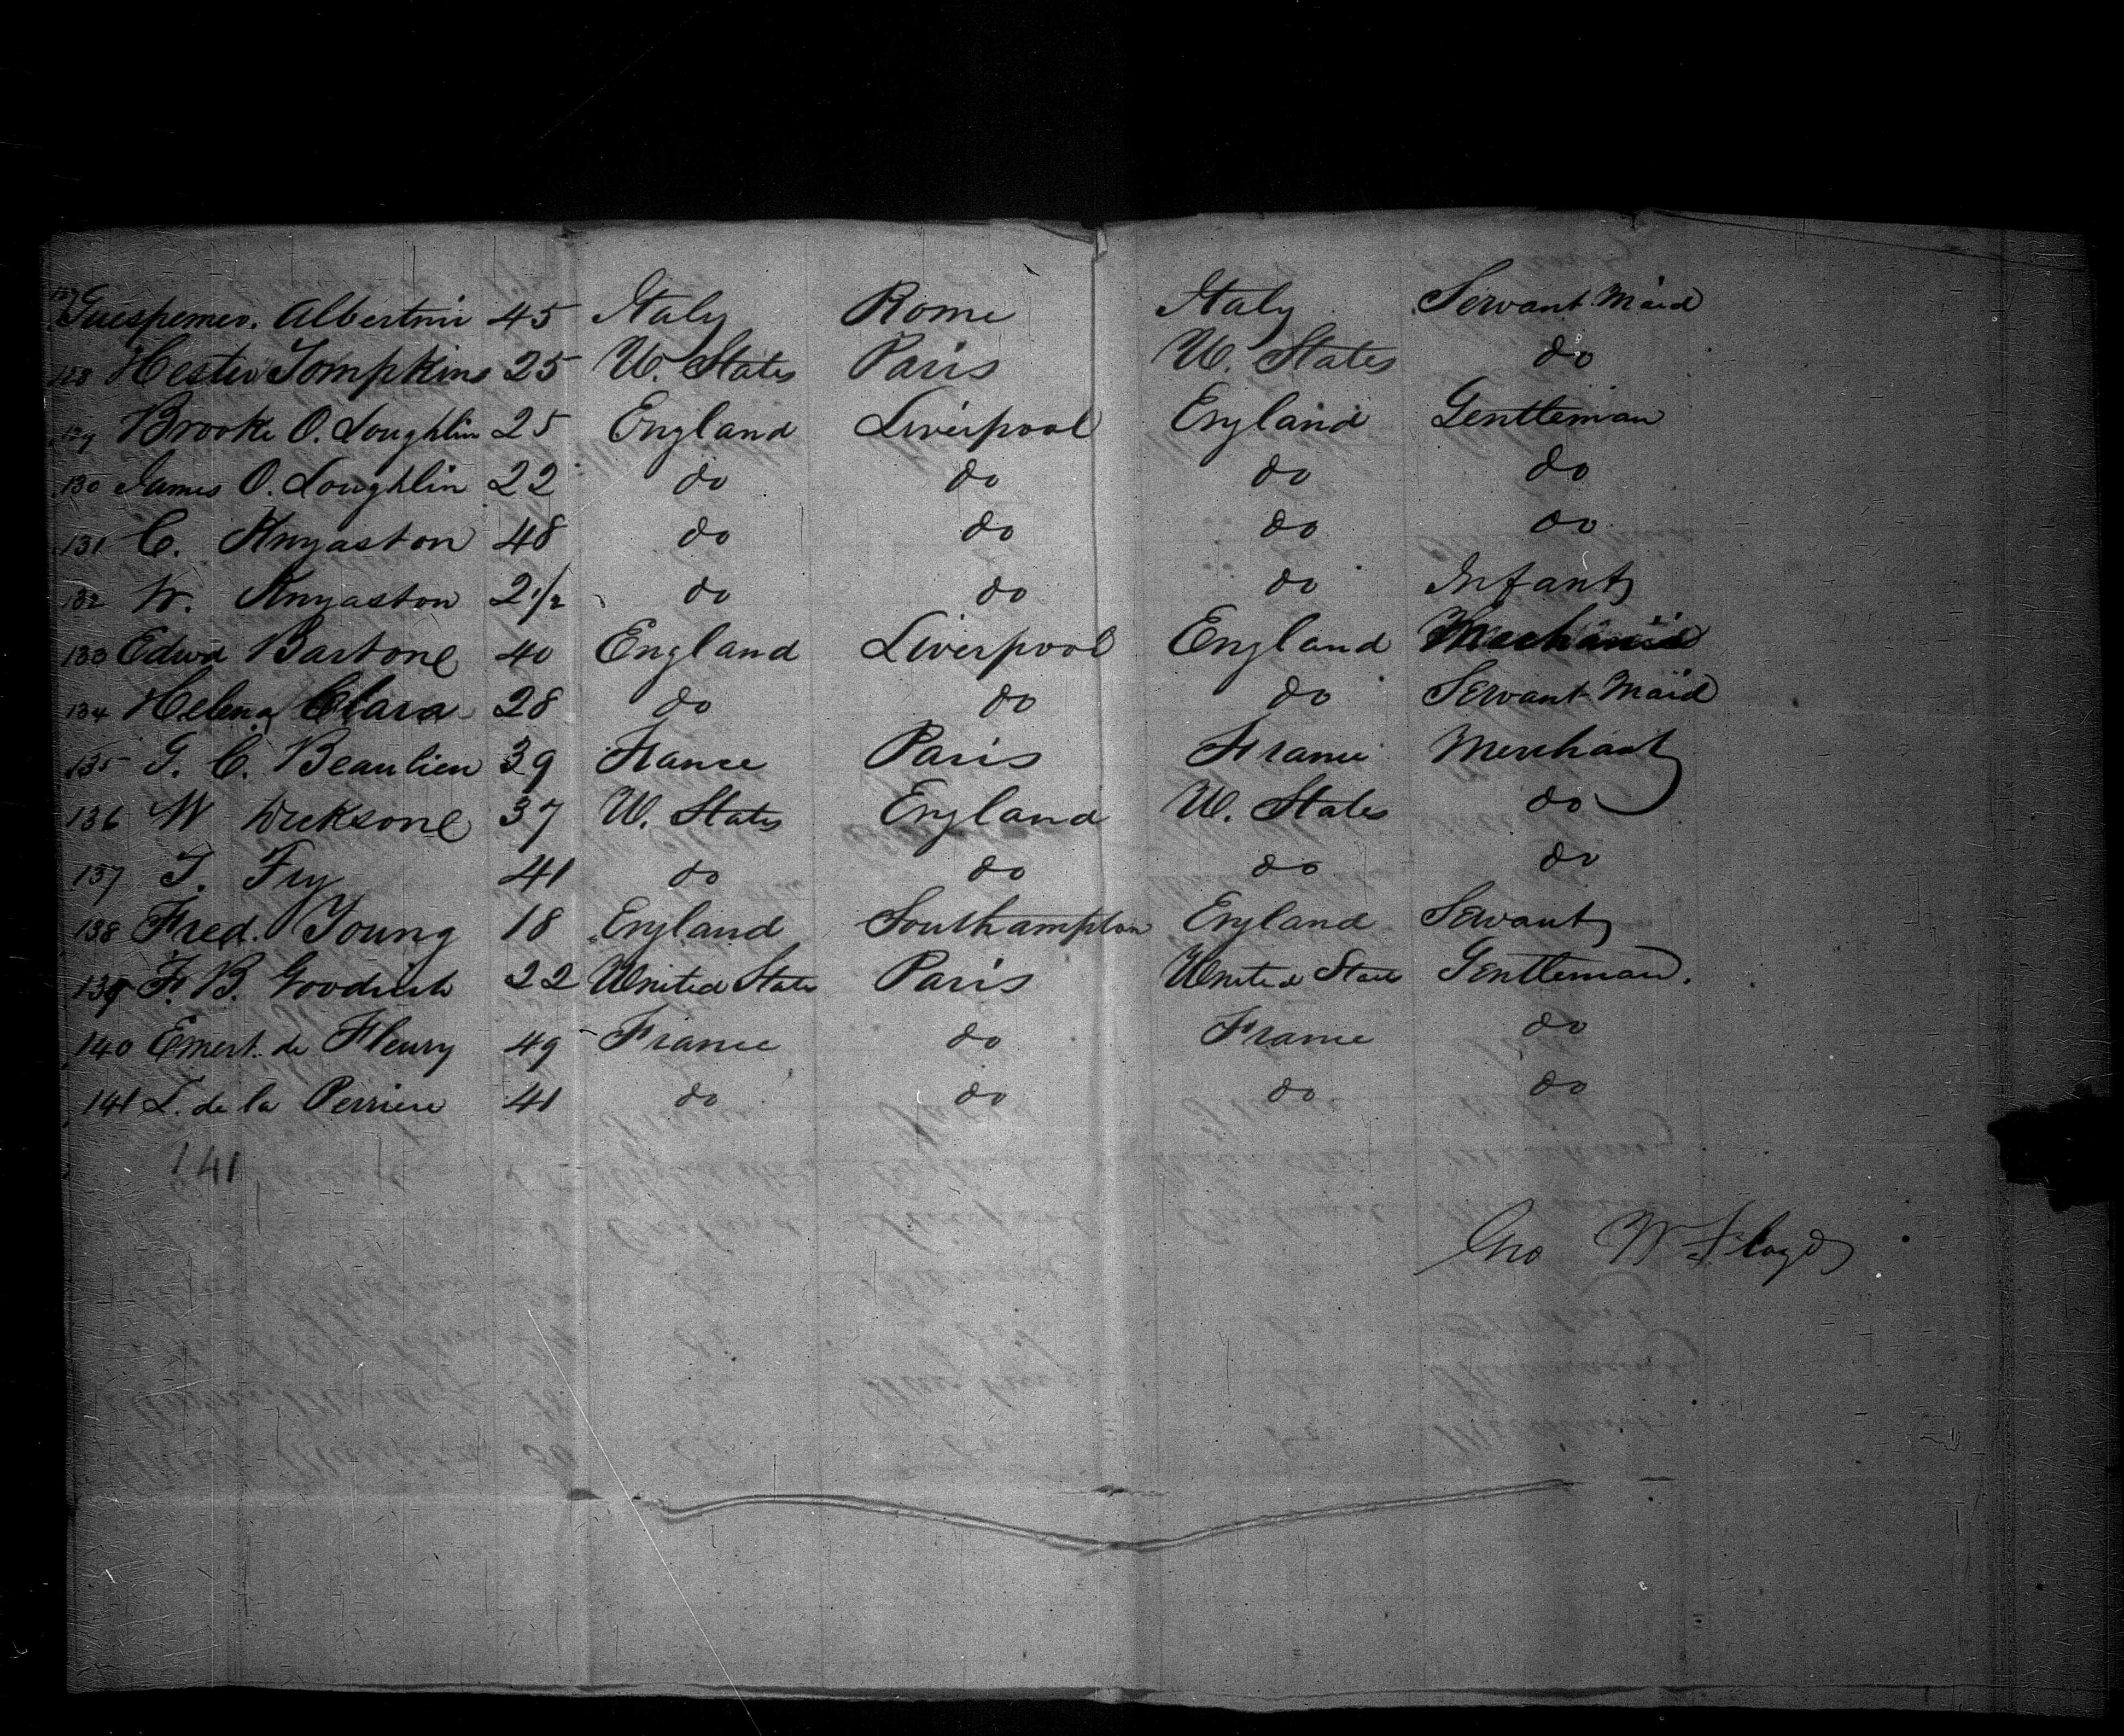 127 Guespemer. Albertini 45 Italy Rome Italy Servant Maid
128 Hester Tompkins 25 U. States Paris U. States do
129 Brooke O. Loughlin 25 England Liverpool England Gentleman
130 James O. Loughlin 22 do do do do
131 C. Knyaston 48 do do do do
132 W. Knyaston 2 1/2 do do do Infant
133 Edwd Bartone 40 England Liverpool England Mechanic
134 Helena Clara 28 do do do Servant Maid
135 G. C. Beaulieu 39 France Paris France Merchant
136 W Dicksone 37 U. States England U. States do
137 T. Fry 41 do do do do
138 Fred. Young 18 England Southampton England Servant
139 F. B. Goodrich 22 United States Paris United States Gentleman.
140 Emert. de Fleury 49 France do France do
141 L. de la Perriere 41 do do do do
141
Geo W Floyd